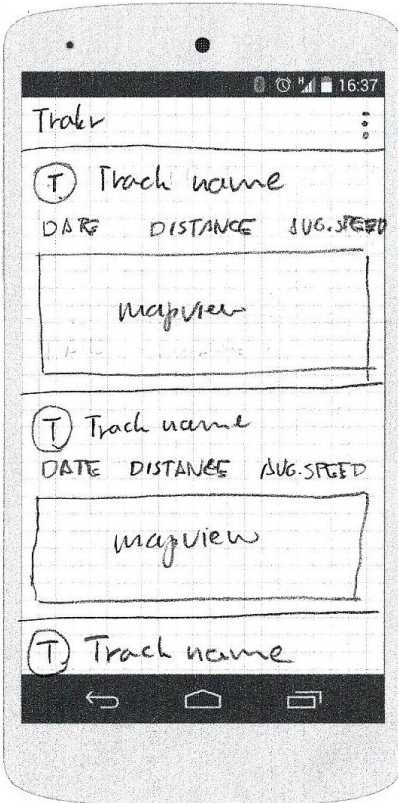 16:37
Trakr
T Track name
DATE DISTANCE AVG.SPEED
mapview
T Track name
DATE DISTANCE AVG.SPEED
mapview
T Track name